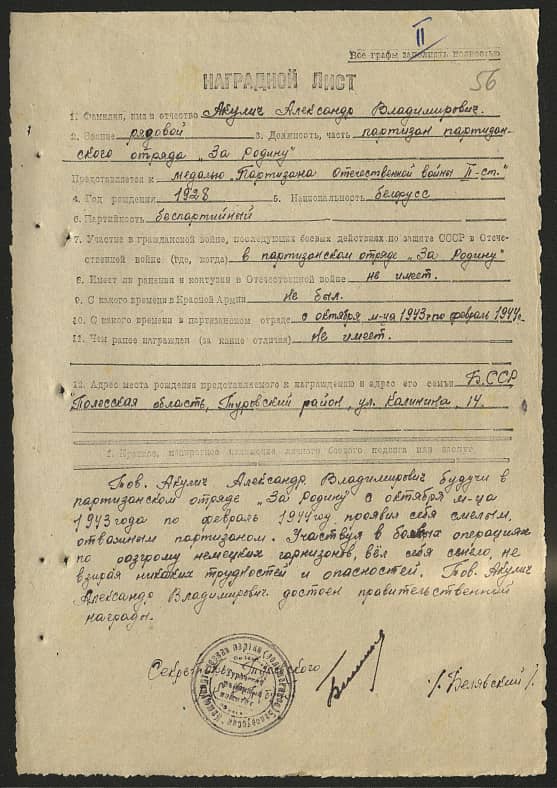 II
Все графы заполнять полностью
НАГРАДНОЙ ЛИСТ
56
1. Фамилия, имя и отчество Акулич Александр Владимирович.
2. Звание рядовой 3. Должность, часть партизан партизан-
ского отряда „За Родину"
Представляется к медалью „Партизана Отечественной войны II-ст."
4. Год рождения 1928 5. Национальность белорусс
6. Партийность беспартийный
7. Участие в гражданской войне, последующих боевых действиях по защите СССР в Отече-
ственной войне (где, когда) в партизанском отряде „За Родину"
8. Имеет ли ранения и контузии в Отечественной войне не имеет.
9. С какого времени в Красной Армии не был.
10. С какого времени в партизанском отряде с октября м-ца 1943г по февраль 1944г.
11. Чем ранее награжден (за какие отличия) не имеет.
12. Адрес места рождения представляемого к награждению и адрес его семьи БССР
Полесская область, Туровский район, ул. Калинина, 14.
1. Краткое, конкретное изложение личного боевого подвига или заслуг
Тов. Акулич Александр Владимирович будучи в
партизанском отряде „За Родину" с октября м-ца
1943 года по февраль 1944 году проявил себя смелым,
отважным партизаном. Участвуя в боевых операциях
по разгрому немецких гарнизонов, вёл себя смело, не
взирая никаких трудностей и опасностей. Тов. Акулич
Александр Владимирович достоен правительственной
награды.
Секретарь Туровского
/. Белявский /.